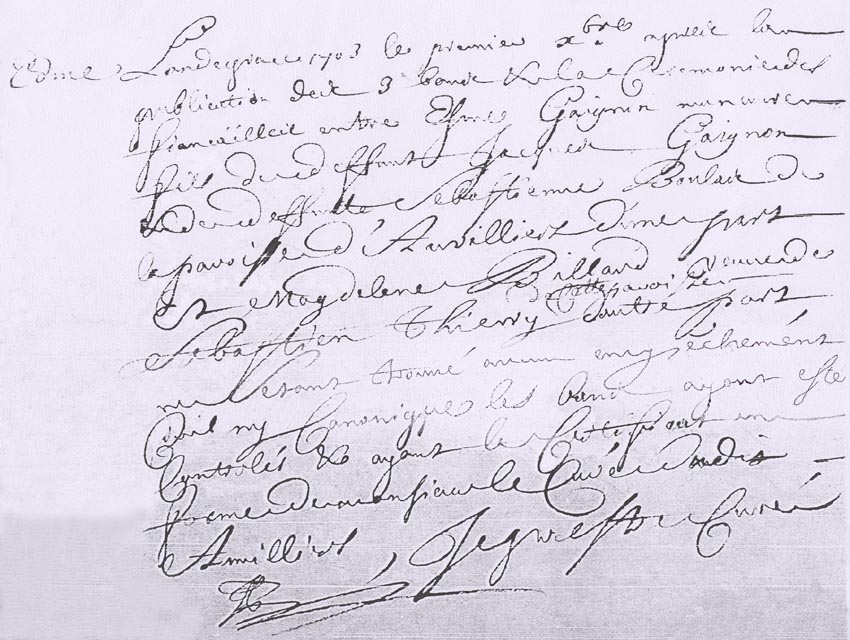 Edme Landegrace 1703 le premier xbre apres la
publication de 3 bans & la Ceremonie des
fiancailles entre Esme Gaignon manouvrier
fils du deffunt Jacques Gaignon
& de deffunte Sebastienne Boulard de
la paroisse d'Auvilliers d'une part
Et Magdelene Billard veuve de
Sebastien Thierry de cette paroisse d'autre part
ne s'etant trouvé aucun empéchément
Civil ny Canonique les bans ayant esté
Controlés & ayant le Certificat en
forme de monsieur le Curé dudit
Auvilliers, Curé